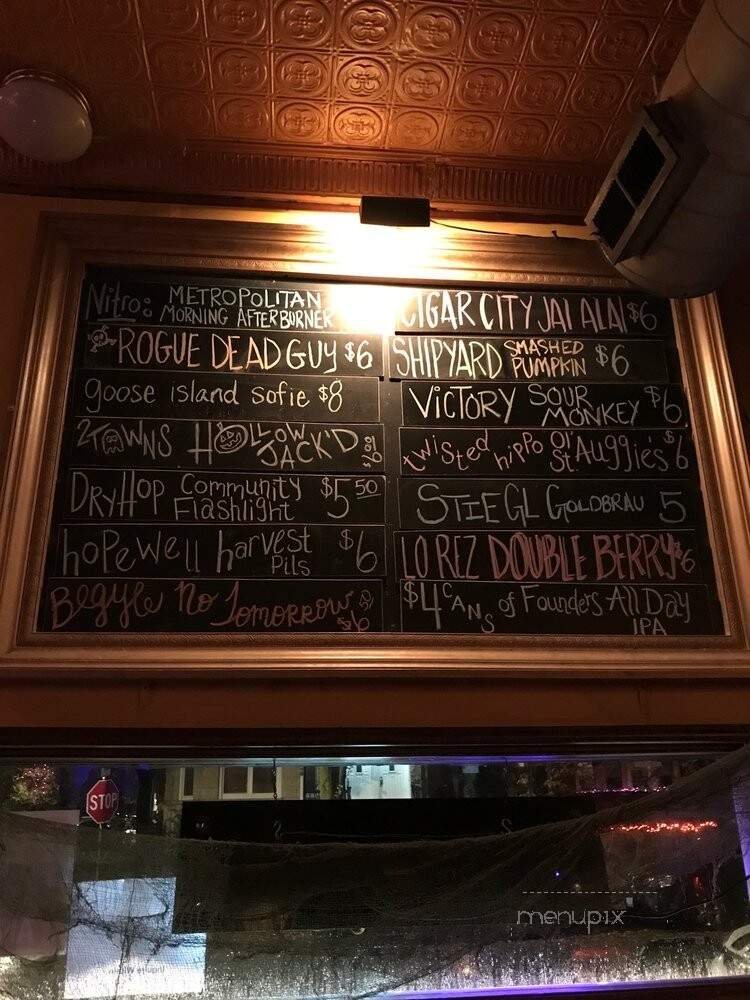 Nitro: METROPOLITAN
MORNING AFTERBURNER
ROGUE DEAD GUY $6
goose island sofie $8
2TOWNS HOLLOW
JACK'D
DRYHOP Community $5 50
Flashlight
hopewell harvest $6
Pils
Begyle No Tomorrow $6
CIGAR CITY JAI ALAI $6
SHIPYARD SMASHED
PUMPKIN $6
VICTORY SOUR
MONKEY $6
twisted hippo Ol'
St. Auggie's $6
STIEGL GOLDBRAU 5
LO REZ DOUBLE BERRY $6
$4 CANS of Founders All Day
IPA
STOP
menupix